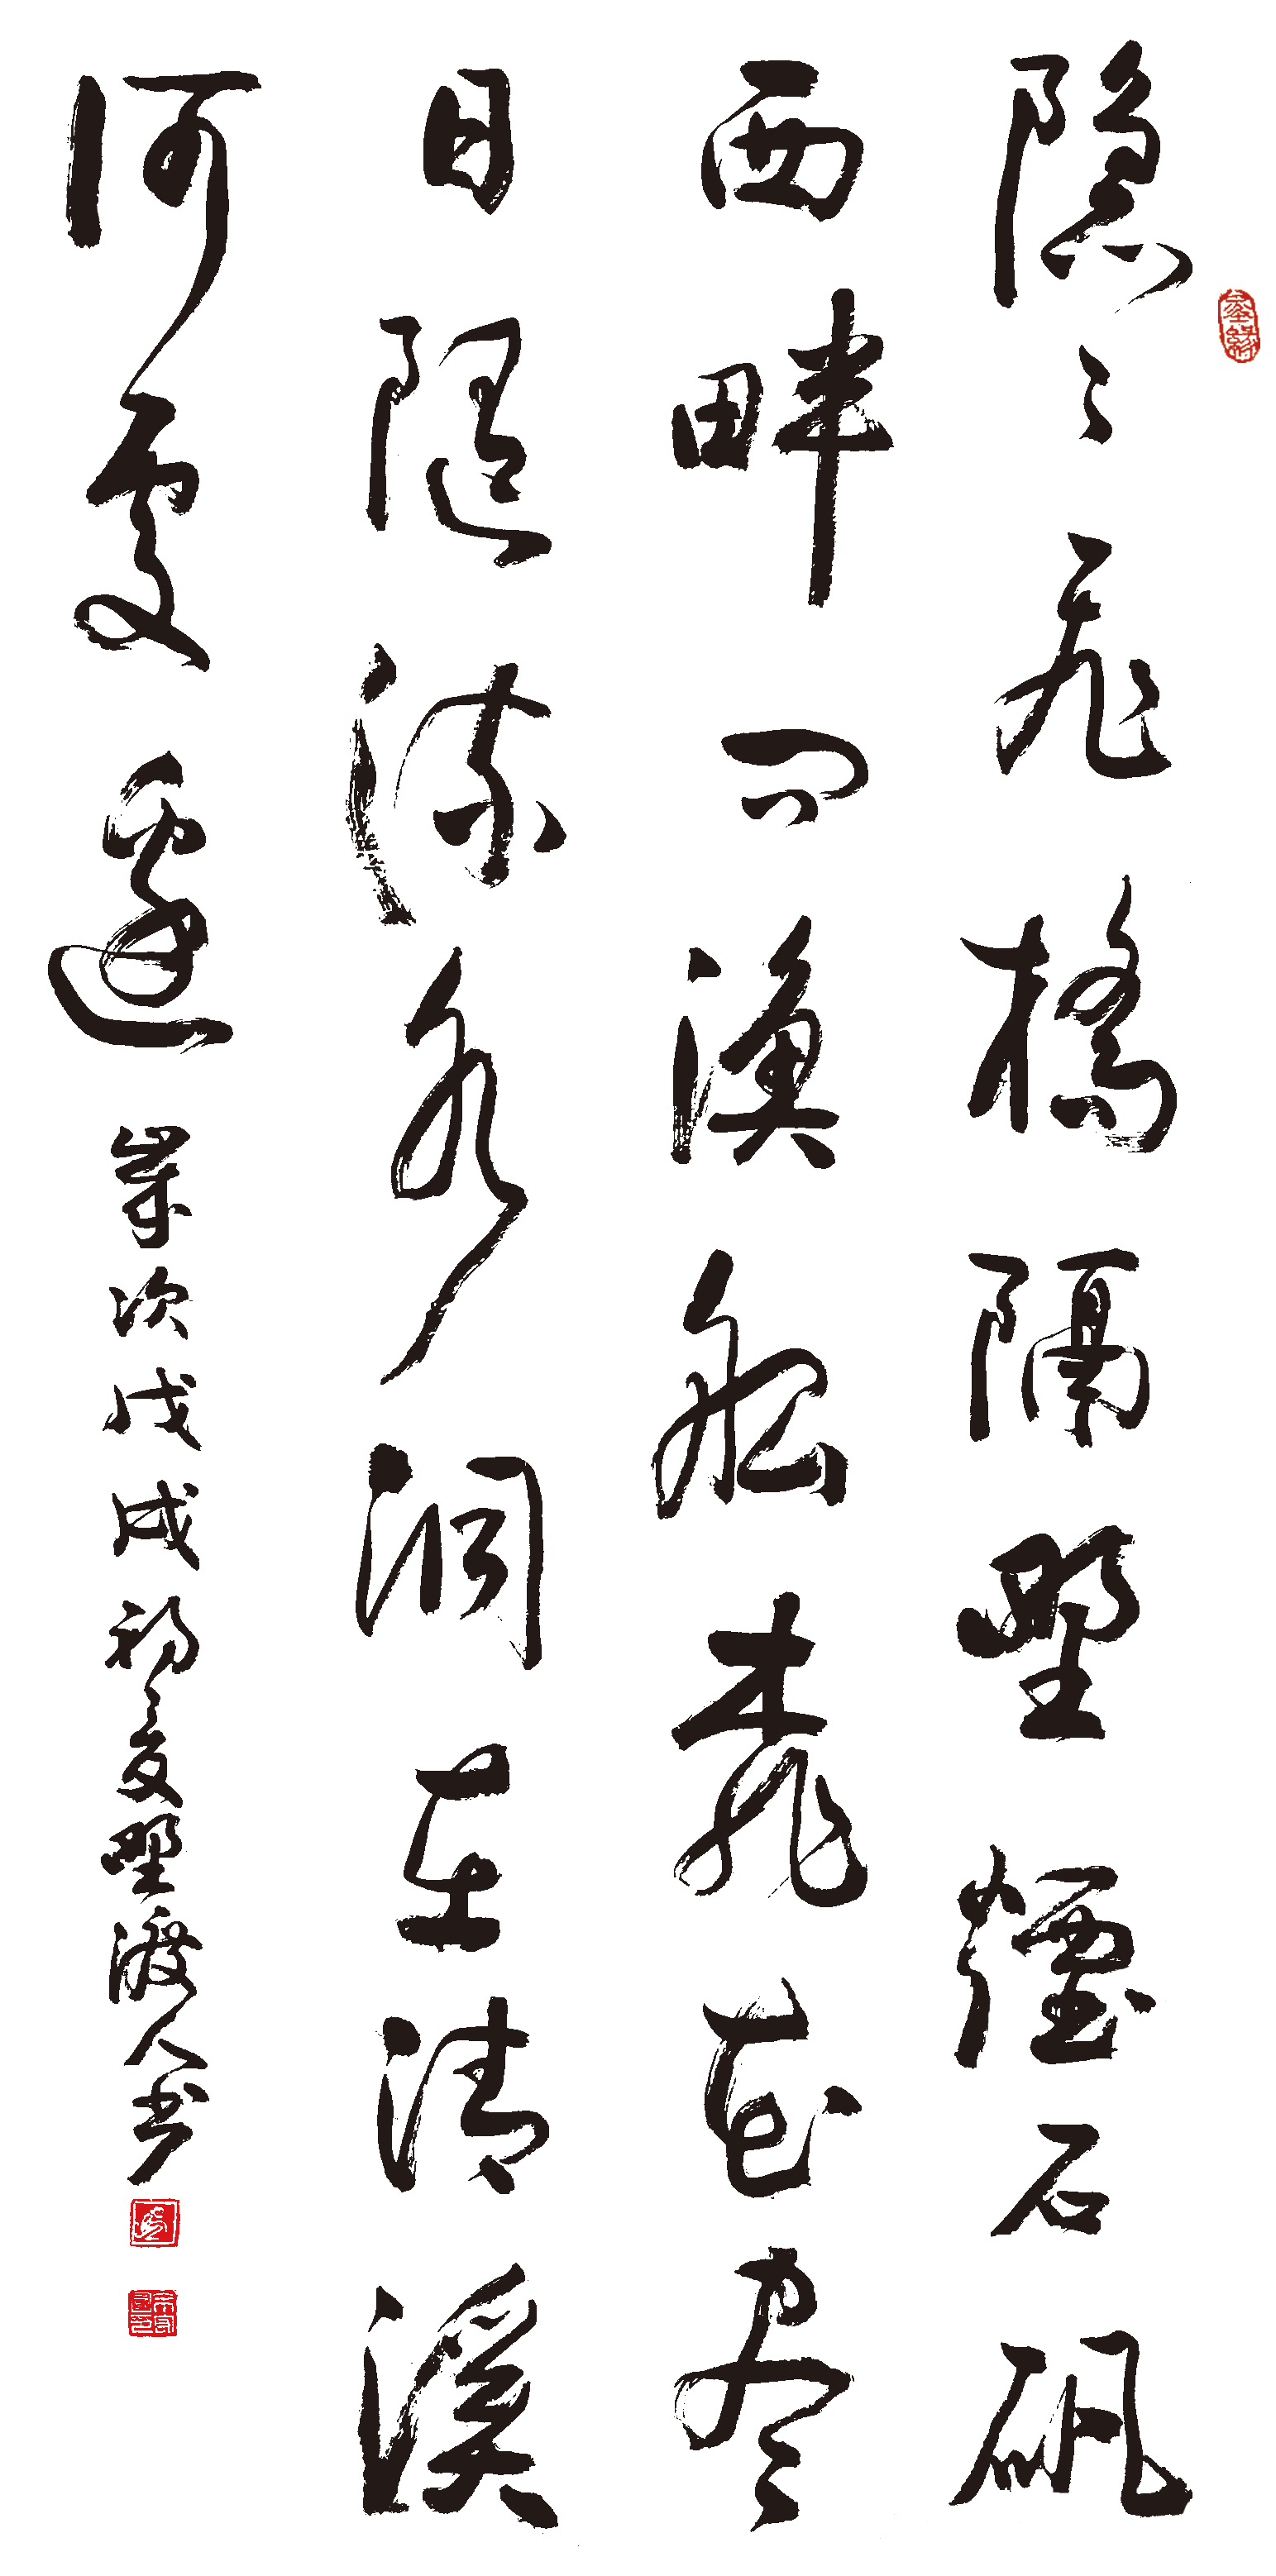 隱〻飛橋隔野煙石磯
西畔問漁船桃花盡
日隨流水洞在清溪
何處邊 歲次戊戌初夏野渡人书